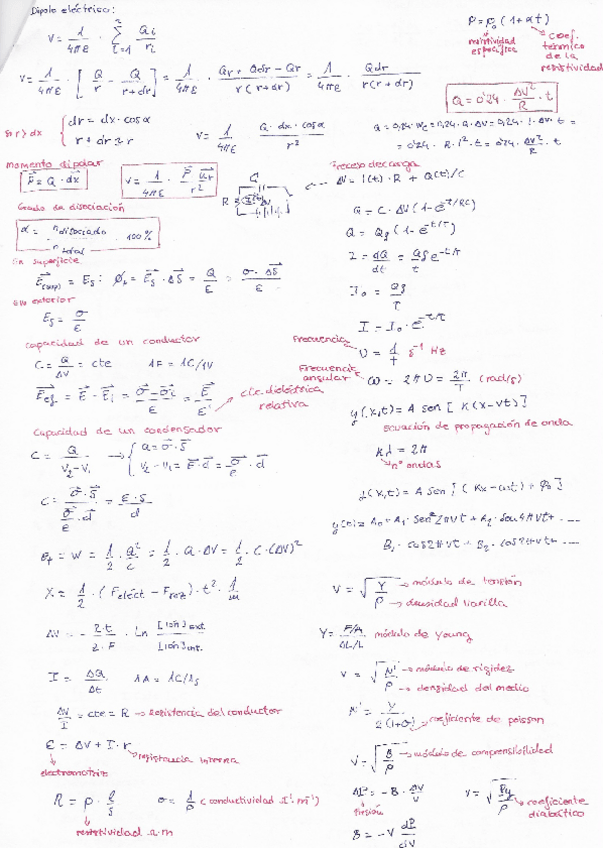 Dipolo eléctrico:
V = 1/4πε · Σ(i=1, n) Qi/ri
V = 1/4πε · [Q/r - Q/(r+dr)] = 1/4πε · (Qr + Qdr - Qr)/(r(r+dr)) = 1/4πε · Qdr/(r(r+dr))
si r > dx { dr = dx · cosα
r + dr ≈ r
V = 1/4πε · Q·dx·cosα/r²
momento dipolar
P = Q · dx
V = 1/4πε · P · ur/r²
Grado de disociación
α = n disociado / n total · 100%
En superficie
E(sup) = Es: Φ = Es · ΔS = Q/ε = σ·ΔS/ε
exterior
Es = σ/ε
capacidad de un conductor
C = Q/ΔV = cte 1F = 1C/1V
Eef = E - Ei = (σ - σi)/ε = E/ε'
cte. dieléctrica relativa
Capacidad de un condensador
C = Q/(V2-V1) → { Q = σ·S
V2-V1 = E·d = σ/ε · d
C = σ·S/(σ/ε · d) = ε·S/d
= W = 1/2 · Q²/C = 1/2 · Q · ΔV = 1/2 · C · (ΔV)²
X = 1/2 · (Feléct - Froz) · t² · 1/m
ΔV = - · Ln [ión]ext./[ión]int.
I = ΔQ/Δt 1A = 1C/1s
ΔV/I = cte = R → Resistencia del conductor
ε = ΔV + I · r
resistencia interna
electromotriz
R = ρ · l/s σ = 1/ρ (conductividad Ω⁻¹·m⁻¹)
resistividad Ω·m
ρ = ρ0 (1 + αt)
resistividad específica
coef. térmico de la resistividad
Q = 0'24 · ΔV²/R · t
Q = 0,24 · We = 0,24 · Q · ΔV = 0,24 · I · ΔV · t =
= 0'24 · R · I² · t = 0'24 · ΔV²/R · t
Proceso descarga
ΔV = I(t) · R + Q(t)/C
Q = C · ΔV (1 - e^-t/RC)
Q = Qf (1 - e^-t/τ)
I = dQ/dt = Qf e^-t/τ / τ
I0 = Qf/τ
I = I0 · e^-t/τ
Frecuencia
υ = 1/T s⁻¹ Hz
Frecuencia angular
ω = 2πυ = 2π/T (rad/s)
y(x,t) = A sen [K(x-vt)]
ecuación de propagación de onda
Kλ = 2π
nº ondas
y(x,t) = A sen [(Kx - ωt) + φ0]
y(t) = A0 + A1 · sen 2πυt + A2 · sen 4πυt + ....
B1 · cos 2πυt + B2 · cos 2πυt + ....
V = √(Y/ρ)
módulo de tensión
densidad varilla
Y = (F/A)/(ΔL/L) módulo de young
V = √(M'/ρ)
módulo de rigidez
densidad del medio
M' = Y/(2(1+σ))
coeficiente de poisson
V = √(B/ρ) → módulo de comprensibilidad
ΔP = -B · ΔV/V
Presión
V = √(Pγ/ρ)
coeficiente diabático
B = -V dP/dV